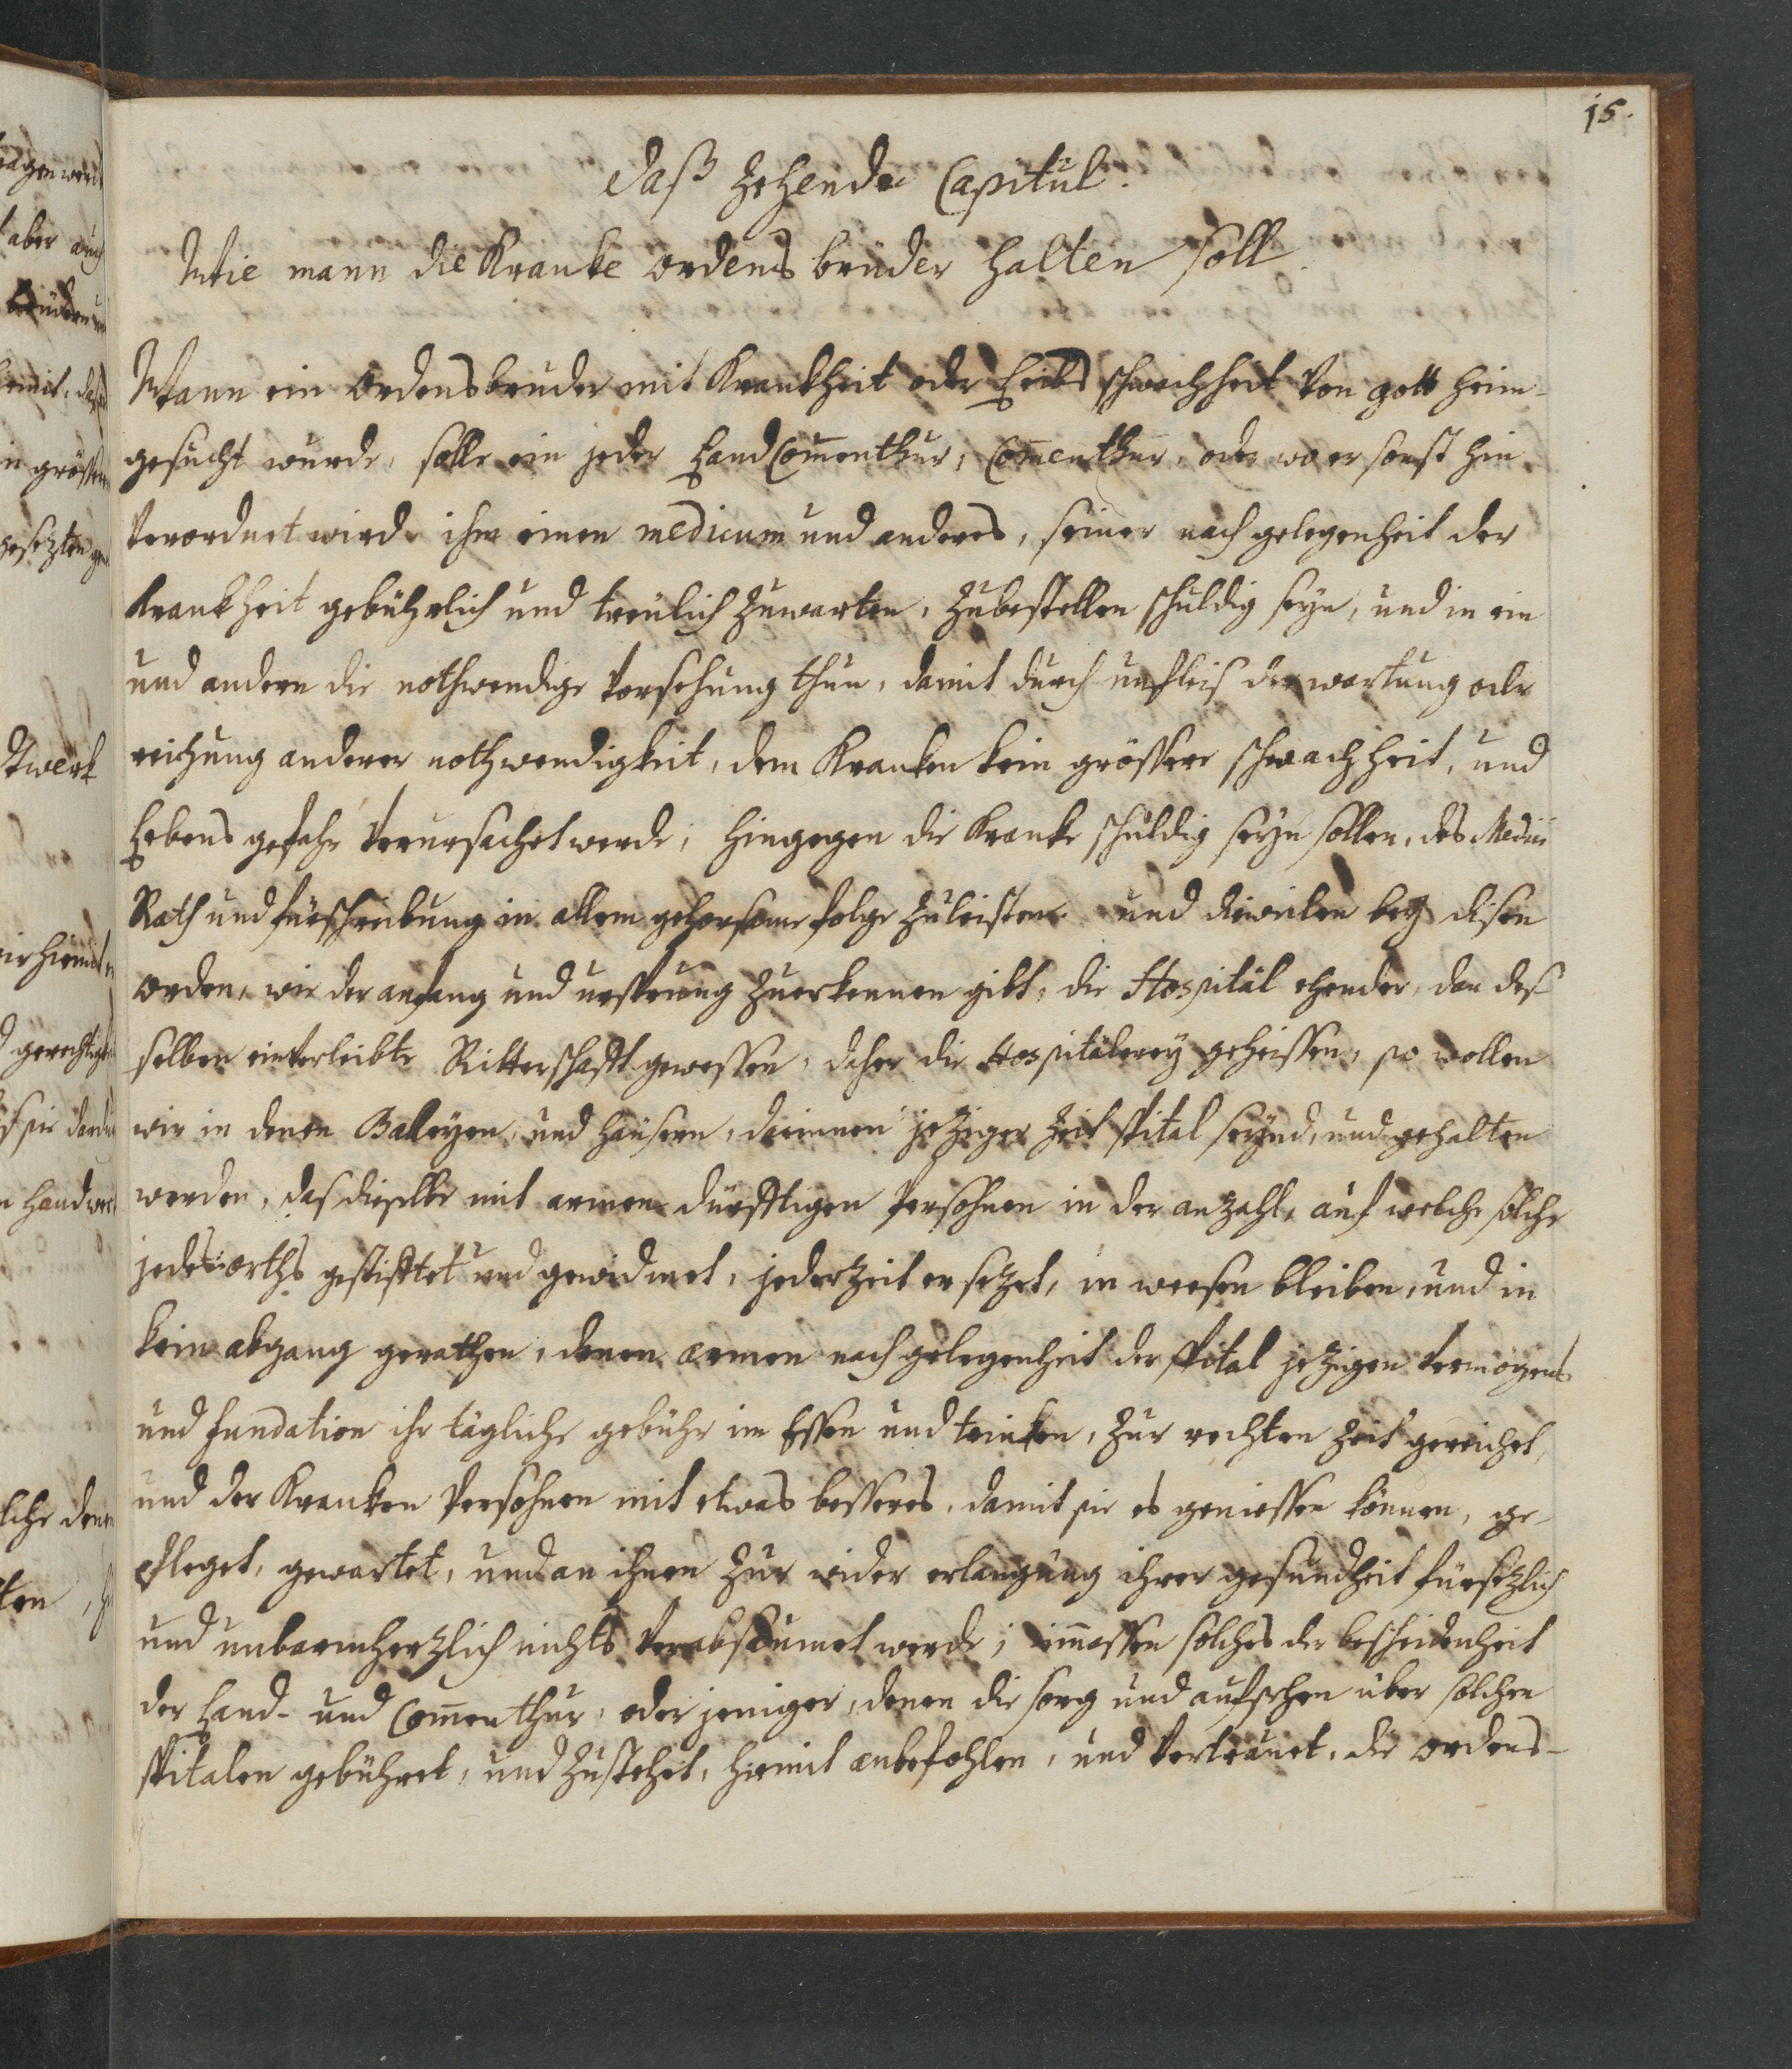 15.
Daß Zehende Capitul.
Wie mann die Kranke ordens brüder halten soll.
Wann ein Ordensbruder mit Krankheit oder Leibs schwachheit von gott heim-
gesucht wurde, solle ein jeder Land Com̄enthur, Com̄enthur, oder wo er sonst hin
verordnet wird, ihm einen medicum und anders, seiner nach gelegenheit der
Krankheit gebührlich und treülich zuwarten, zubestellen schuldig seyn, und in ein
und andern die nothwendige vorsehung thun, damit durch unfleis der wartung oder
reichung anderer nothwendigkeit, dem Kranken kein grössere schwachheit, und
Lebens gefahr verursachet werde, hingegen die Kranke schuldig seyn sollen, des Medici
Rath und fürschreibung in allem gehorsame folge zuleisten. und dieweilen bey disen
orden, wie der anfang und ursprung zuerkennen gibt, die Hospitäl ehender, dan des-
selben einverleibte Ritterschafft gewessen, daher die Hospitälerey geheissen, so wollen
wir in denen Baleyen, und haüsern, darinnen jeziger Zeit spital seynd, und gehalten
werden, das dieselbe mit armen dürfftigen Persohnen in der anzahl, auf welche solche
jedes orths gestifftet und gewidmet, jederzeit ersezet, in weesen bleiben, und in
kein abgang gerathen, denen armen nach gelegenheit der spital jezigen vermögens
und fundation ihr tägliche gebühr im Essen und trinken, zur rechten Zeit gereichet,
und der Kranken Persohnen mit etwas bessers, damit sie es geniessen können, ge-
pfleget, gewartet, und an ihnen zur wider erlangung ihrer gesundheit fürsezlich
und unbarmherzlich nichts verabsaumet werde; im̄assen solches der bescheidenheit
der Land- und Com̄enthur, oder jeniger, denen die sorg und aufsehen über solchen
spitalen gebühret, und zustehet, hiemit anbefohlen, und vertrauet, die ordens-